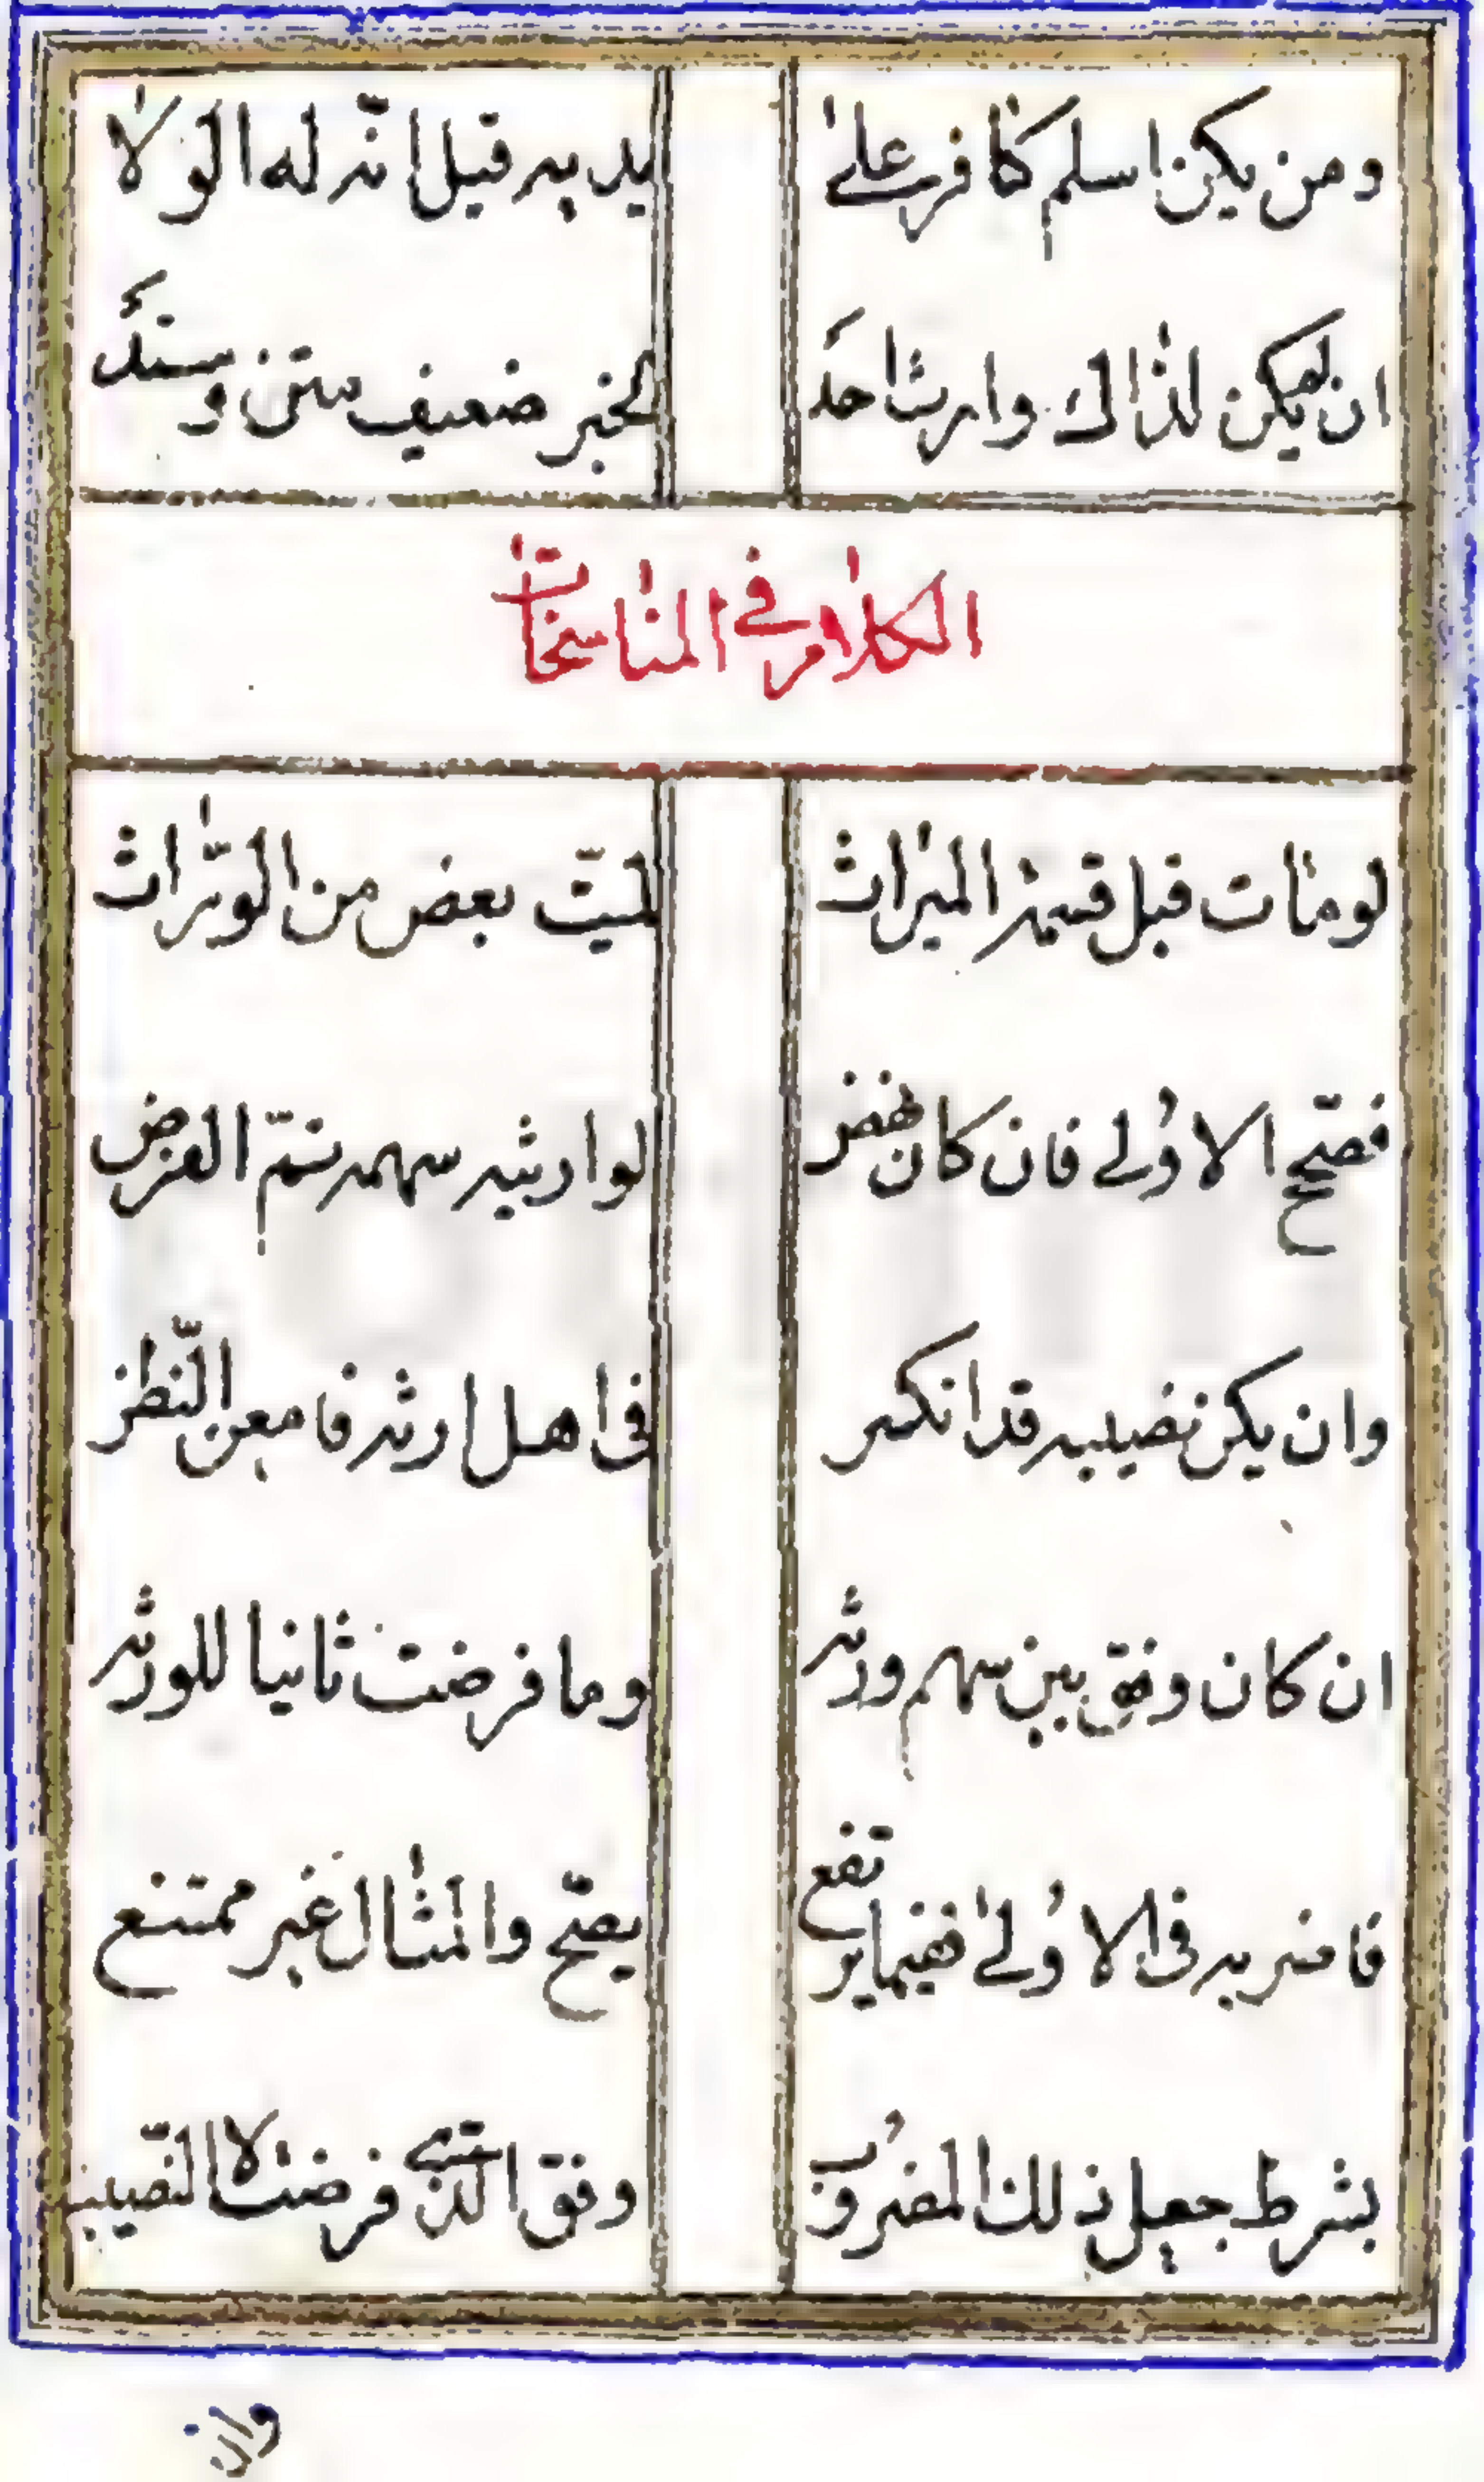 ومن يكن اسلم كافر على يديه قيل انّه له الولا
ان لم يكن لذاك وارث احد لخبر ضعيف متن وسند
الكلام في المناسخات
لو مات قبل قسمة الميراث لميّت بعض من الورّاث
فصحّح الاولى فان كان نهض لوارثيه سهمه تمّ الغرض
وان يكن نصيبه قد انكسر في اهل ارثه فامعن النّظر
ان كان وفق بين سهم ورثه وما فرضت ثانيا للورثه
فاضربه في الاولى ففيما يرتفع يصحّ والمثال غير ممتنع
بشرط جعل ذلك المضروب وفق الّذي فرضت لا النّصيب
وان